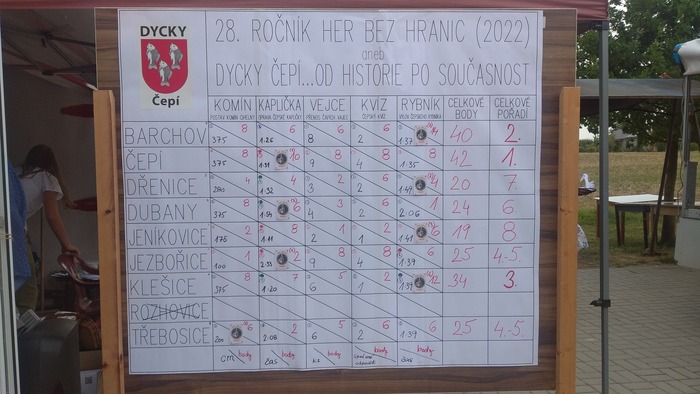 DYCKY
Čepí
28. ROČNÍK HER BEZ HRANIC (2022)
aneb
DYCKY ČEPÍ...OD HISTORIE PO SOUČASNOST
KOMÍN KAPLIČKA VEJCE KVÍZ RYBNÍK CELKOVÉ BODY CELKOVÉ POŘADÍ
BARCHOV 375 8 1:26 6 8 8 2 6 1:37 40 2.
ČEPÍ 375 8 9 8 4 8 1:35 8 42 1.
DŘENICE 280 4 1:32 4 3 2 2 6 20 7.
DUBANY 375 8 4 3 2 6 2:06 1 24 6.
JENÍKOVICE 175 2 1:11 8 2 1 1 2 1:41 19 8.
JEZBOŘICE 100 1 2:33 9 8 4 8 1:39 6 25 4.-5.
KLEŠICE 375 8 1:20 7 6 5 1 2 1:39 34 3.
ROZHOVICE
TŘEBOSICE 200 2:08 2 6 5 2 6 1:39 6 25 4.-5.
cm body čas body ks body body body